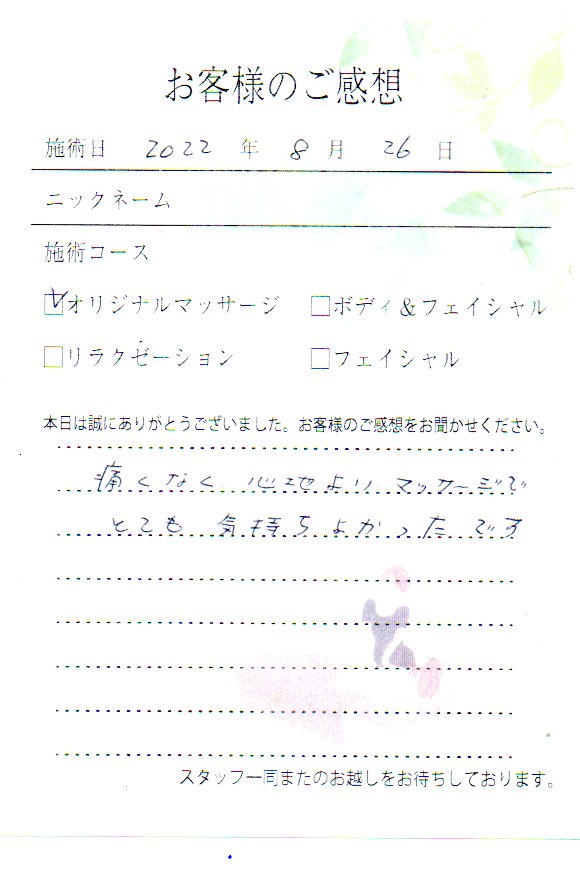 お客様のご感想
施術日 2022 年 8 月 26 日
ニックネーム
施術コース
☑オリジナルマッサージ □ボディ&フェイシャル
□リラクゼーション □フェイシャル
本日は誠にありがとうございました。お客様のご感想をお聞かせください。
痛くなく 心地よい マッサージで
とても 気持ちよかったです
スタッフ一同またのお越しをお待ちしております。